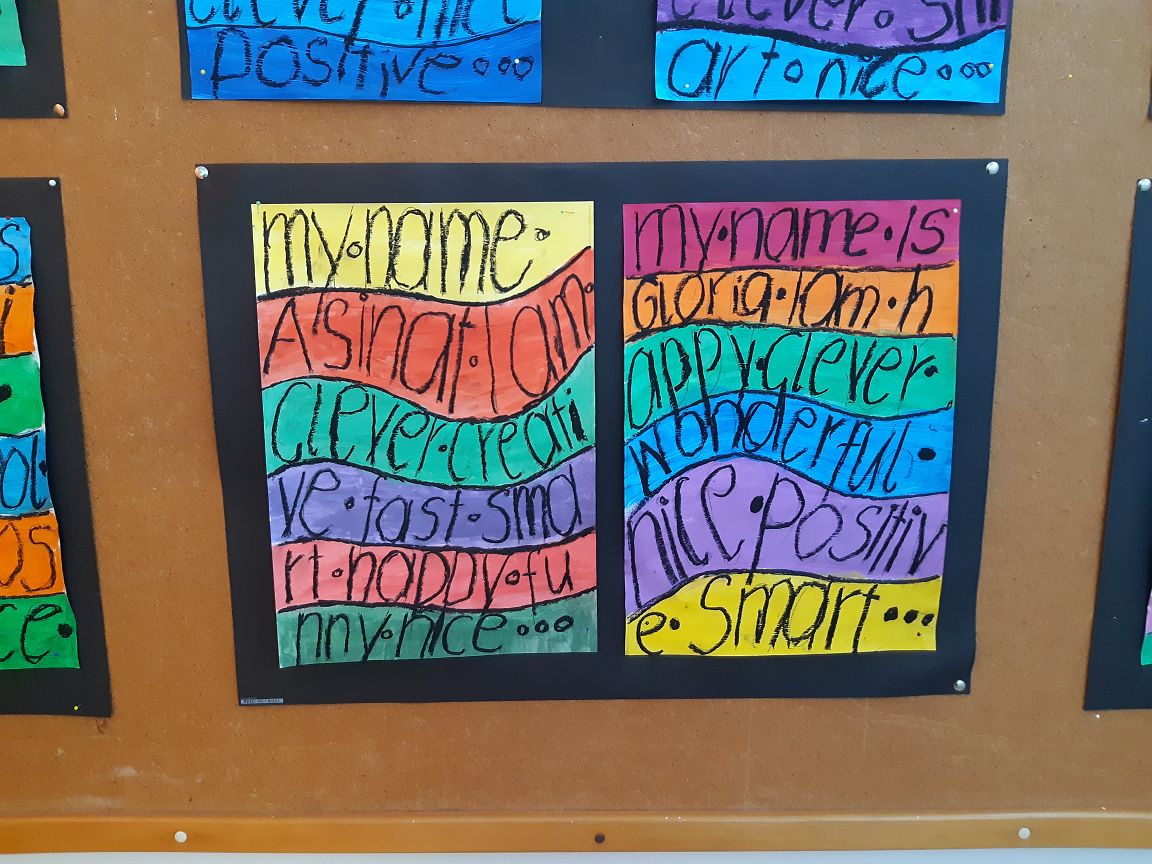 clever·nice
positive...
clever. sm
art·nice...
my·name·
A'sinat·I am·
clever·creati
ve·fast·sma
rt·happy·fu
nny·nice...
my·name·Is
Gloria·Iam·h
appy·clever·
wonderful·
nice·positiv
e·smart...
s
i
os
ce·